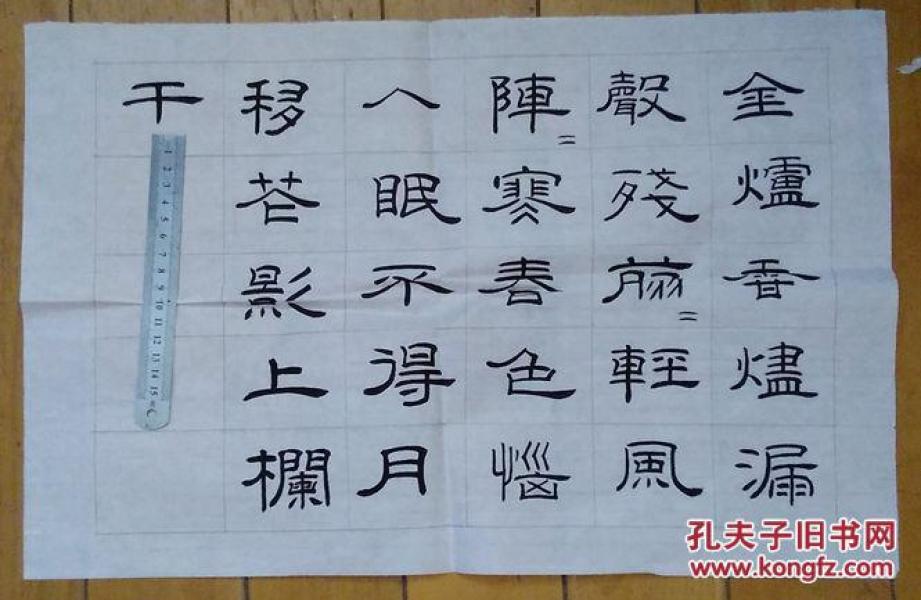 金爐香燼漏
聲殘翦〻輕風
陣〻寒春色惱
人眠不得月
移花影上欄
干
1 2 3 4 5 6 7 8 9 10 11 12 13 14 15
孔夫子旧书网
www.kongfz.com